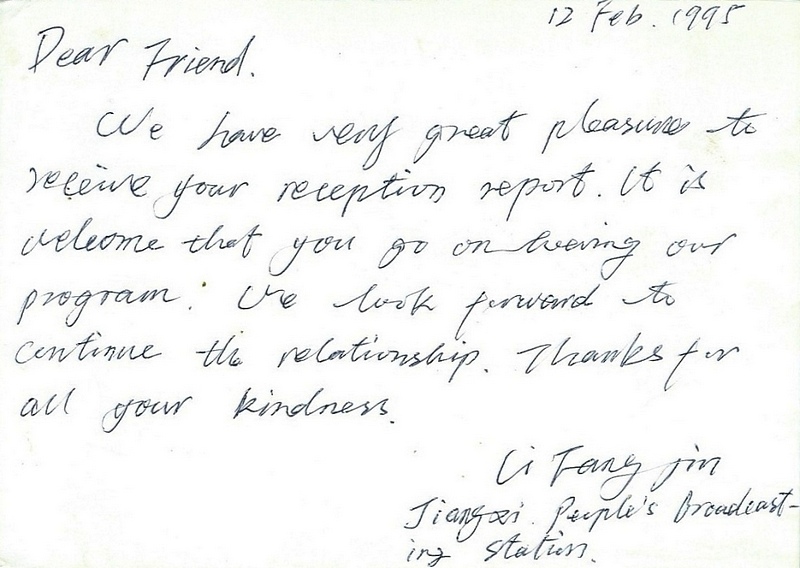 12 Feb. 1995
Dear Friend.
We have very great pleasure to
receive your reception report. It is
welcome that you go on hearing our
program. We look forward to
continue the relationship. Thanks for
all your kindness.
Li Fang jin
Jiangxi People's Broadcast-
ing station.